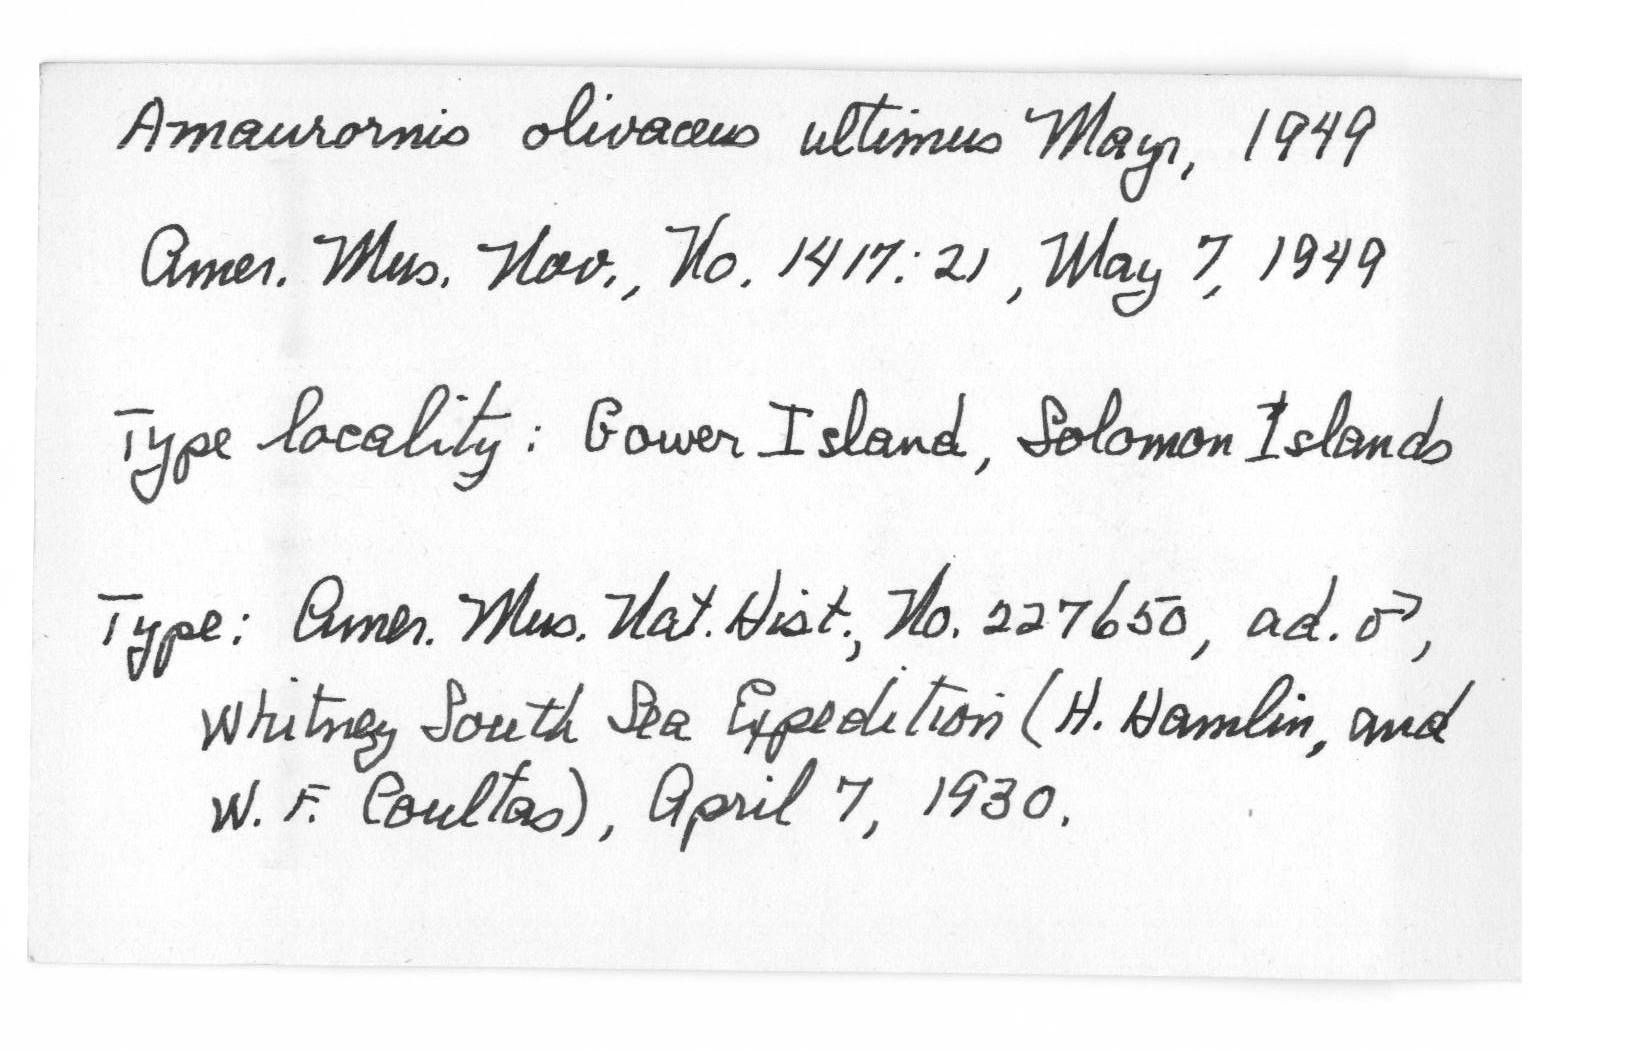 Amaurornis olivaceus ultimus Mayr, 1949
Amer. Mus. Nov., No. 1417: 21, May 7, 1949
Type locality: Gower Island, Solomon Islands
Type: Amer. Mus. Nat. Hist., No. 227650, ad. ♂,
Whitney South Sea Expedition (H. Hamlin, and
W. F. Coultas), April 7, 1930.